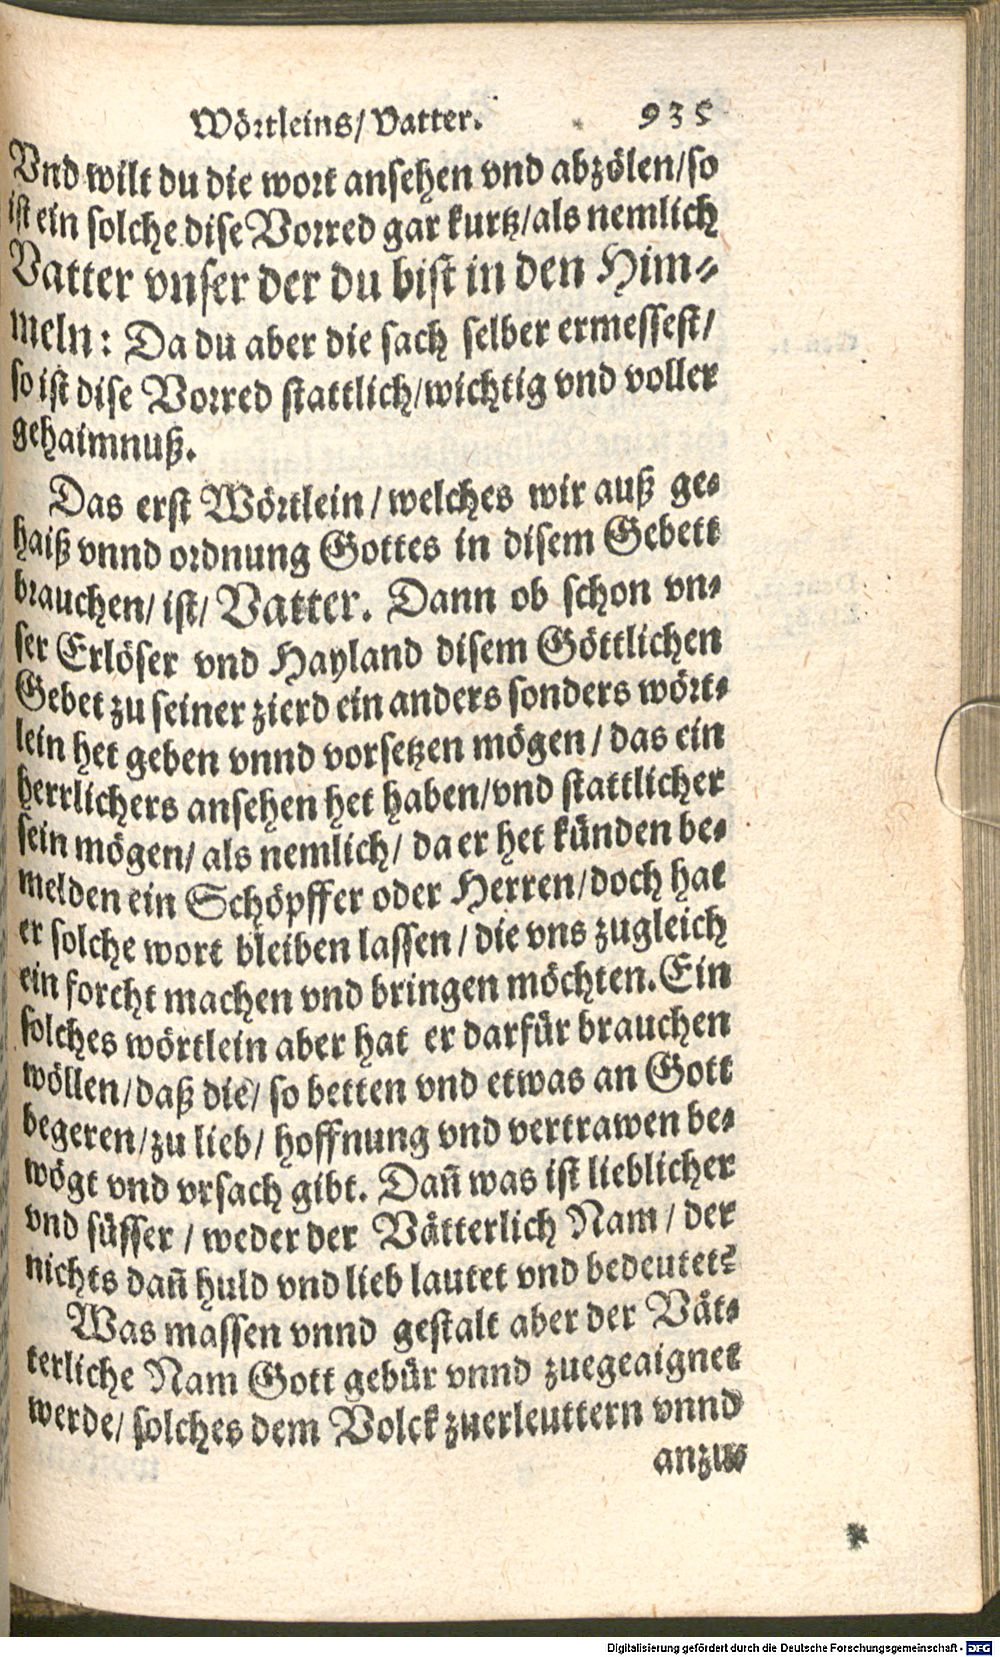 Wörtleins/ Vatter. 935
Vnd wilt du die wort ansehen vnd abzölen/ so
ist ein solche dise Vorred gar kurtz/ als nemlich
Vatter vnser der du bist in den Him-
meln: Da du aber die sach selber ermessest/
so ist dise Vorred stattlich/ wichtig vnd voller
gehaimnuß.
Das erst Wörtlein/ welches wir auß ge-
haiß vnnd ordnung Gottes in disem Gebett
brauchen/ ist/ Vatter. Dann ob schon vn-
ser Erlöser vnd Hayland disem Göttlichen
Gebet zu seiner zierd ein anders sonders wört-
lein het geben vnnd vorsetzen mögen/ das ein
herrlichers ansehen het haben/ vnd stattlicher
sein mögen/ als nemlich/ da er het künden be-
melden ein Schöpffer oder Herren/ doch hat
er solche wort bleiben lassen/ die vns zugleich
ein forcht machen vnd bringen möchten. Ein
solches wörtlein aber hat er darfür brauchen
wöllen/ daß die/ so betten vnd etwas an Gott
begeren/ zu lieb/ hoffnung vnd vertrawen be-
wögt vnd vrsach gibt. Dañ was ist lieblicher
vnd süsser/ weder der Vätterlich Nam/ der
nichts dañ huld vnd lieb lautet vnd bedeutet?
Was massen vnnd gestalt aber der Vät-
terliche Nam Gott gebür vnnd zuegeaignet
werde/ solches dem Volck zuerleuttern vnnd
anzu-
*
Digitalisierung gefördert durch die Deutsche Forschungsgemeinschaft - DFG